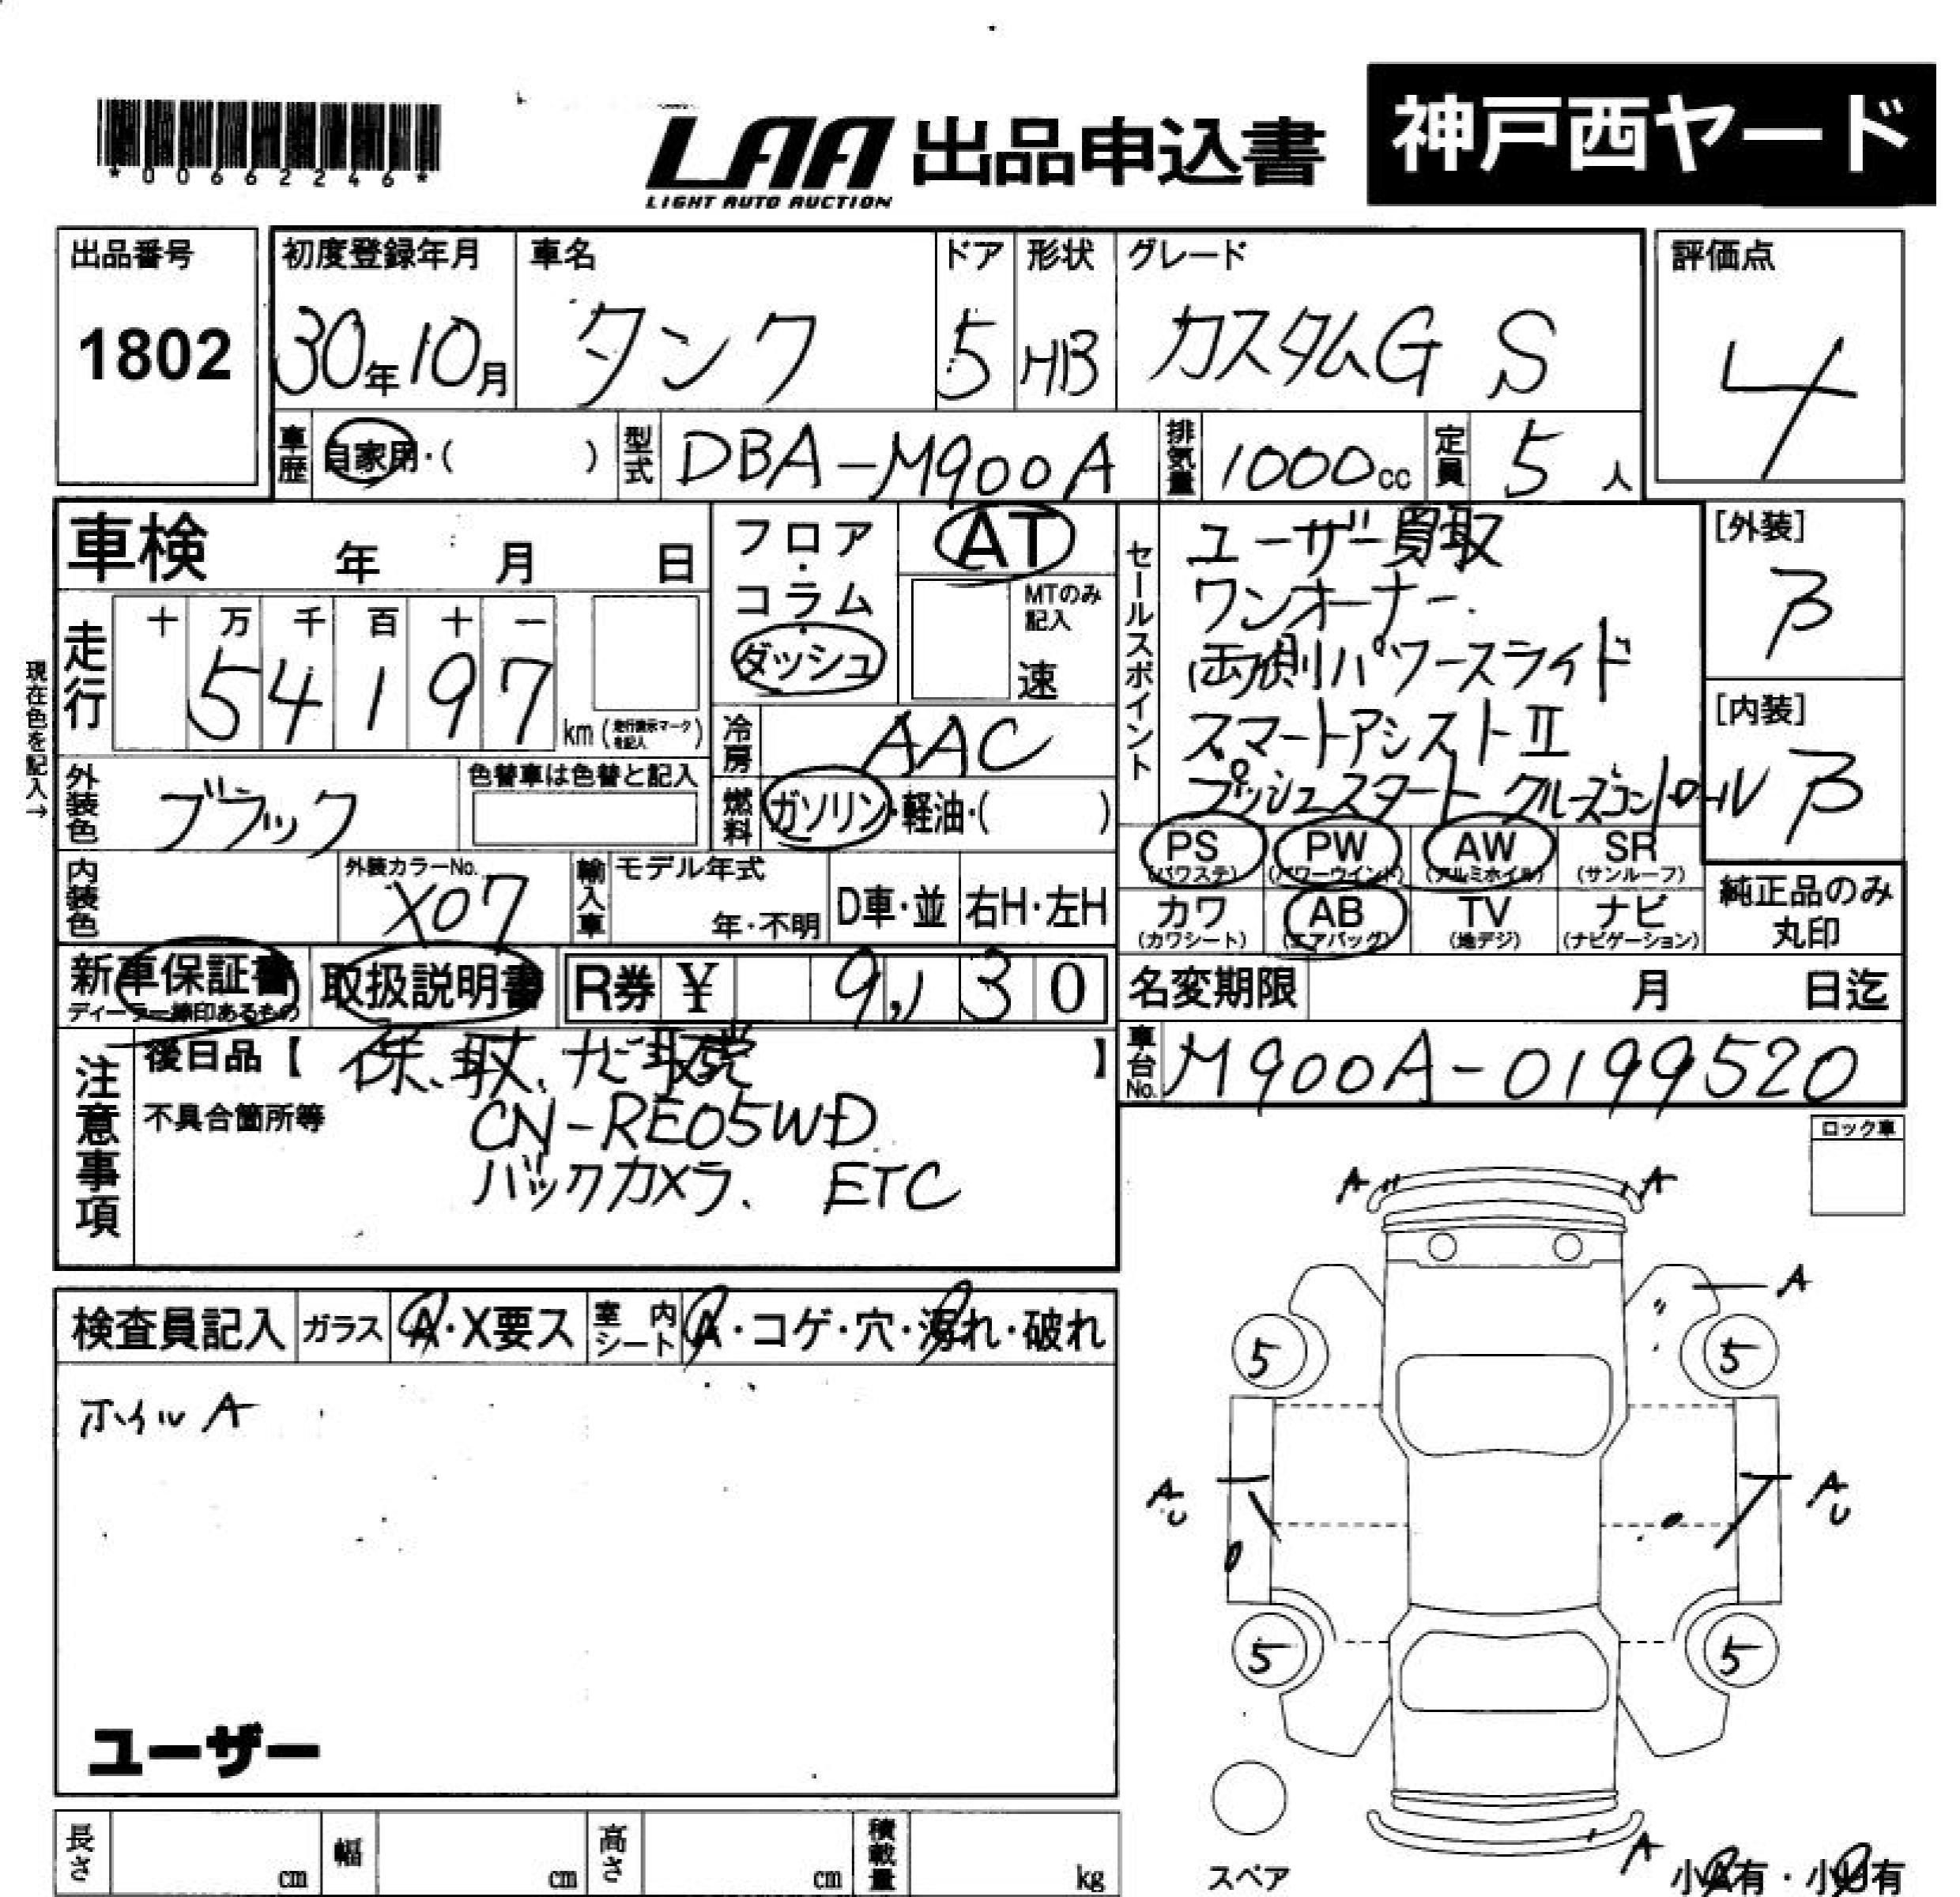 *00662246*
LAA
LIGHT AUTO AUCTION
出品申込書
神戸西ヤード
出品番号
1802
初度登録年月
30年10月
車名
タンク
ドア
5
形状
HB
グレード
カスタムG S
評価点
4
車歴
自家用・( )
型式
DBA-M900A
排気量
1000cc
定員
5人
車検 年 月 日
走行
十 万 千 百 十 一
5 4 1 9 7
km (走行表示マークを記入)
現在色を記入→
フロア・コラム・ダッシュ
AT
MTのみ記入
速
冷房
AAC
燃料
ガソリン・軽油・( )
セールスポイント
ユーザー買取
ワンオーナー.
両側パワースライド
スマートアシストII
プッシュスタート クルーズコントロール
[外装]
β
[内装]
β
外装色
ブラック
色替車は色替と記入
内装色
外装カラーNo.
X07
輸入車
モデル年式
年・不明
D車・並
右H・左H
PS
(パワステ)
PW
(パワーウインド)
AW
(アルミホイル)
SR
(サンルーフ)
カワ
(カワシート)
AB
(エアバッグ)
TV
(地デジ)
ナビ
(ナビゲーション)
純正品のみ
丸印
新車保証書
取扱説明書
R券 ¥ 9,130
名変期限 月 日迄
車台No.
M900A-0199520
注意事項
後日品【 保、取、ナビ取説 】
不具合箇所等
CN-RE05WD
バックカメラ、 ETC
ロック車
検査員記入
ガラス
A・X要ス
室内シート
A・コゲ・穴・汚れ・破れ
ホイルA
ユーザー
A A
A
5 5
A A
U U
5 5
A
スペア
小A有・小U有
長さ cm
幅 cm
高さ cm
積載量 kg